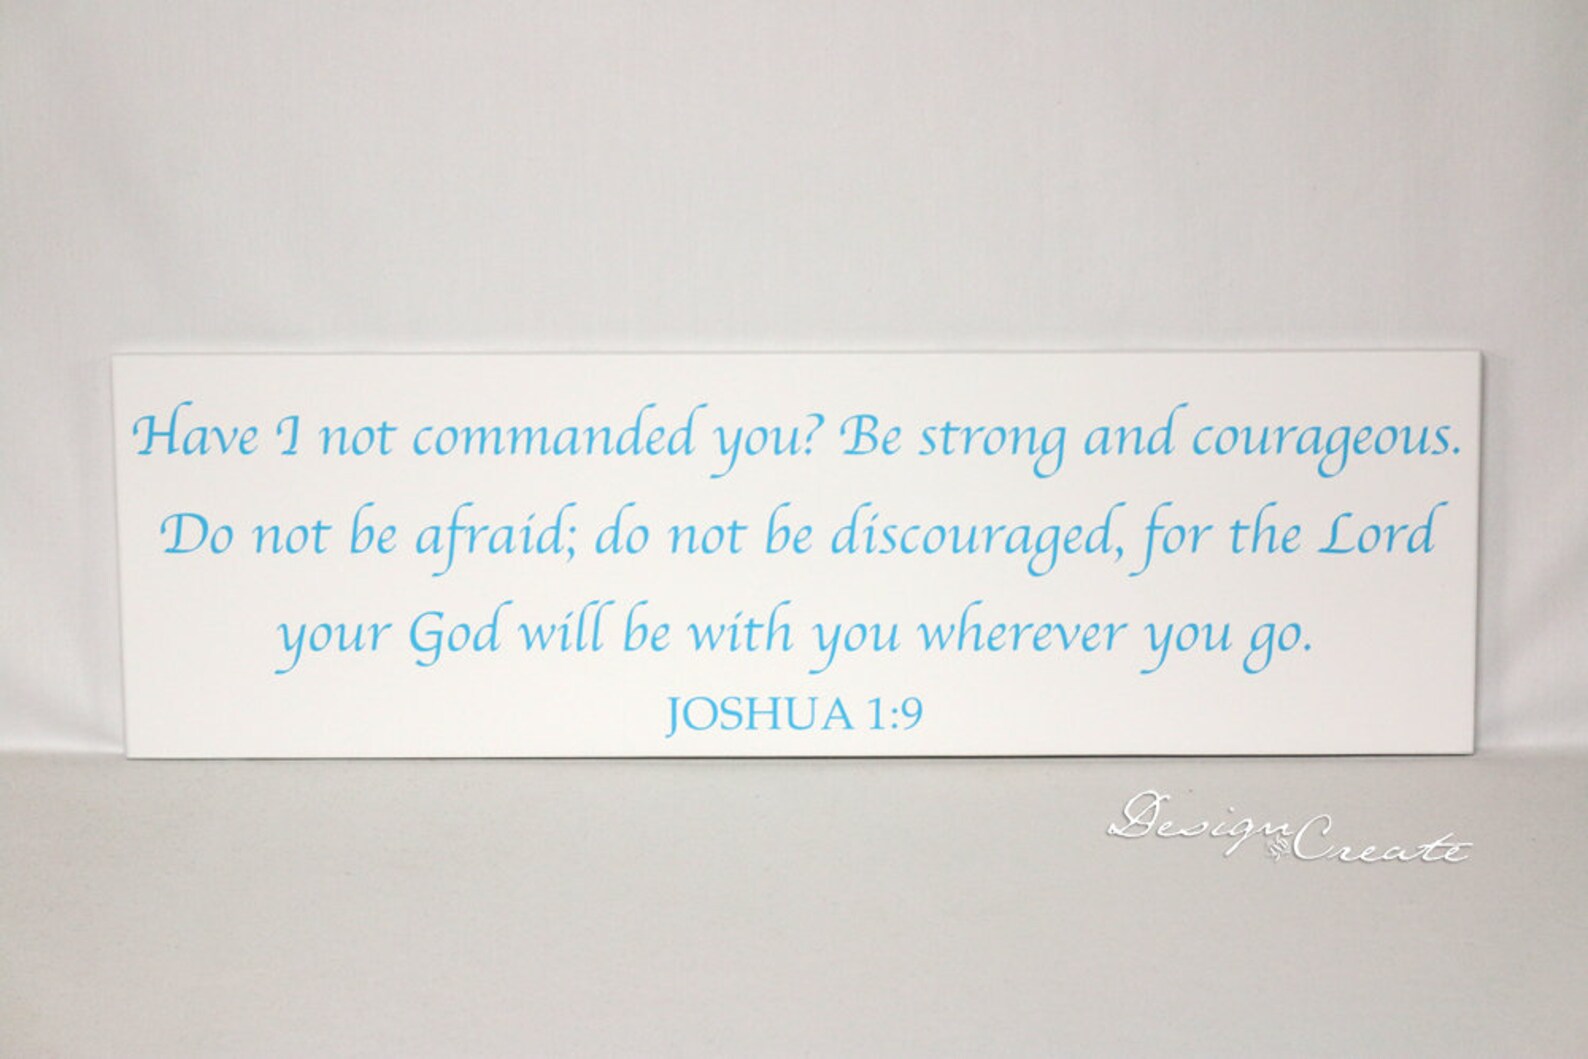 Have I not commanded you? Be strong and courageous.
Do not be afraid; do not be discouraged, for the Lord
your God will be with you wherever you go.
JOSHUA 1:9
Design Create